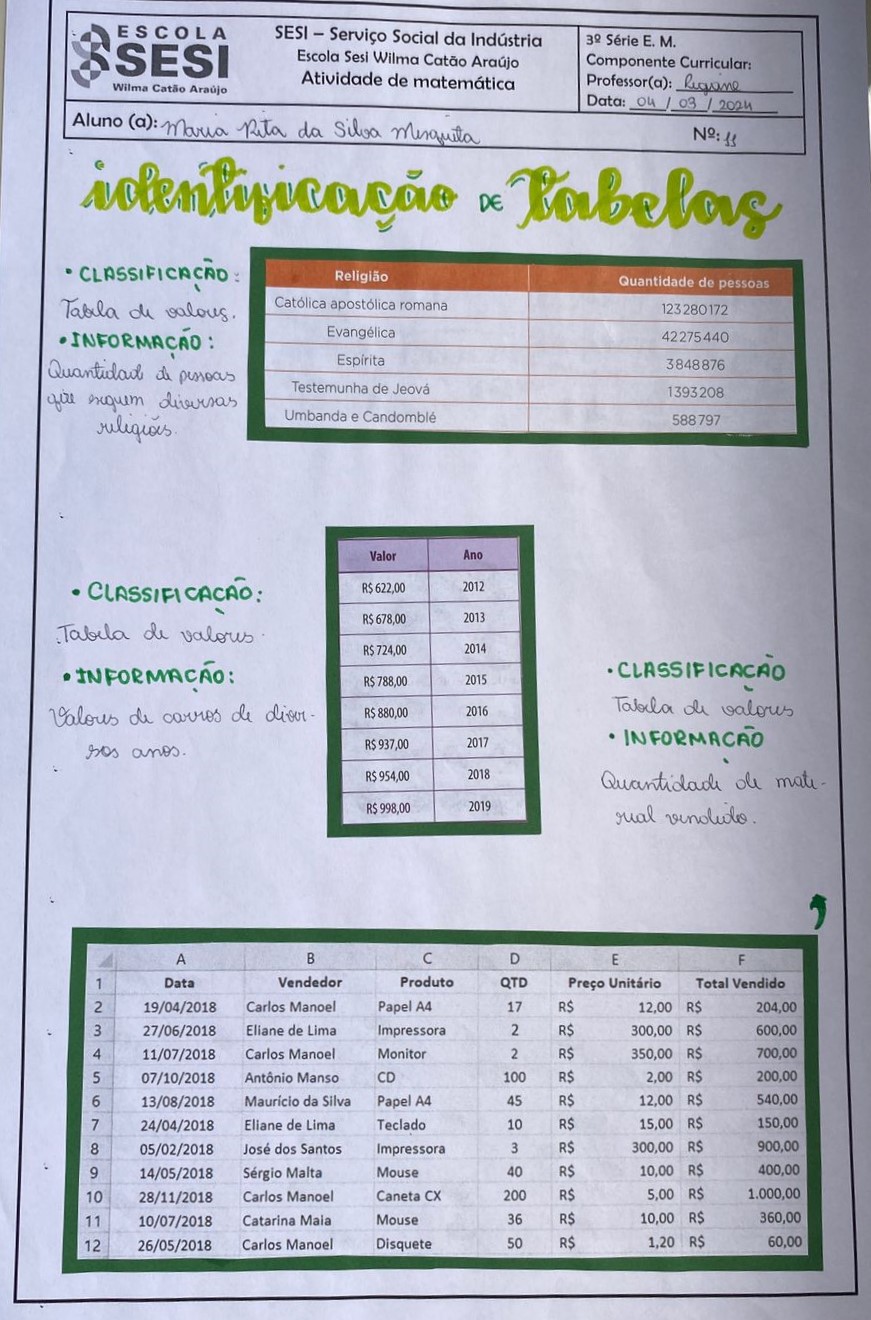 ESCOLA
SESI
Wilma Catão Araújo
SESI – Serviço Social da Indústria
Escola Sesi Wilma Catão Araújo
Atividade de matemática
3º Série E. M.
Componente Curricular:
Professor(a): Rigiane
Data: 04 / 03 / 2024
Aluno (a): Maria Rita da Silva Mesquita
Nº: 11
identificação DE Tabelas
• CLASSIFICAÇÃO:
Tabela de valores.
• INFORMAÇÃO:
Quantidad de pessoas
que seguem diversas
religiões.
Religião Quantidade de pessoas
Católica apostólica romana 123280172
Evangélica 42275440
Espírita 3848876
Testemunha de Jeová 1393208
Umbanda e Candomblé 588797
• CLASSIFICAÇÃO:
Tabela de valores.
• INFORMAÇÃO:
Valores de carros de diver-
sos anos.
Valor Ano
R$ 622,00 2012
R$ 678,00 2013
R$ 724,00 2014
R$ 788,00 2015
R$ 880,00 2016
R$ 937,00 2017
R$ 954,00 2018
R$ 998,00 2019
• CLASSIFICAÇÃO
Tabela de valores
• INFORMAÇÃO
Quantidade de mate-
rial vendido.
A B C D E F
1 Data Vendedor Produto QTD Preço Unitário Total Vendido
2 19/04/2018 Carlos Manoel Papel A4 17 R$ 12,00 R$ 204,00
3 27/06/2018 Eliane de Lima Impressora 2 R$ 300,00 R$ 600,00
4 11/07/2018 Carlos Manoel Monitor 2 R$ 350,00 R$ 700,00
5 07/10/2018 Antônio Manso CD 100 R$ 2,00 R$ 200,00
6 13/08/2018 Maurício da Silva Papel A4 45 R$ 12,00 R$ 540,00
7 24/04/2018 Eliane de Lima Teclado 10 R$ 15,00 R$ 150,00
8 05/02/2018 José dos Santos Impressora 3 R$ 300,00 R$ 900,00
9 14/05/2018 Sérgio Malta Mouse 40 R$ 10,00 R$ 400,00
10 28/11/2018 Carlos Manoel Caneta CX 200 R$ 5,00 R$ 1.000,00
11 10/07/2018 Catarina Maia Mouse 36 R$ 10,00 R$ 360,00
12 26/05/2018 Carlos Manoel Disquete 50 R$ 1,20 R$ 60,00